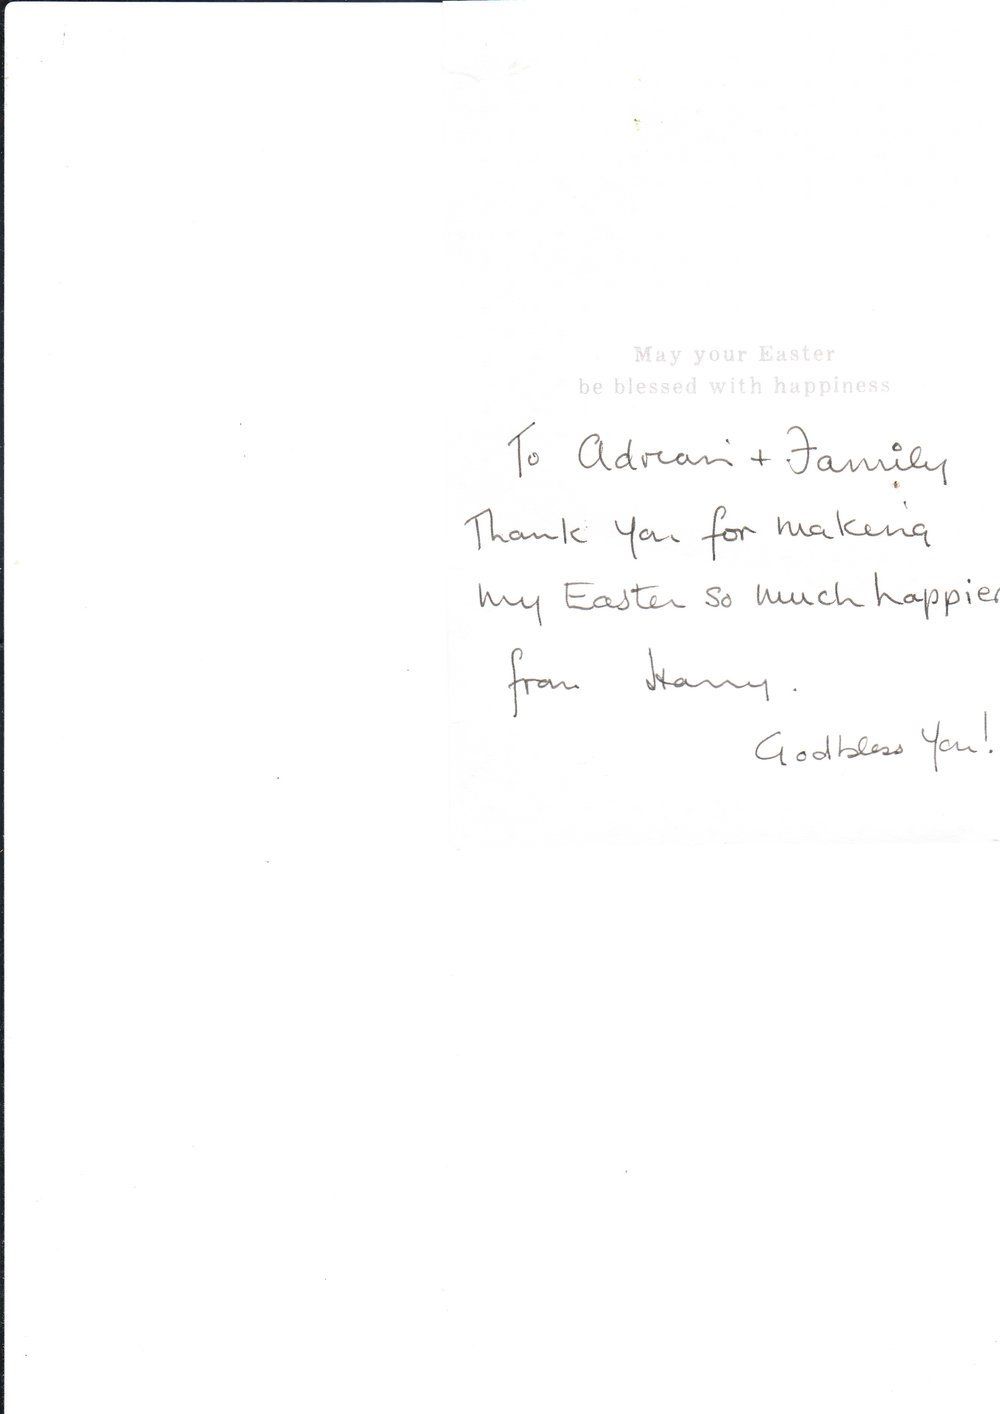 May your Easter
be blessed with happiness
To Adrian + Family
Thank you for making
my Easter so much happier
from Harry.
Godbless You!